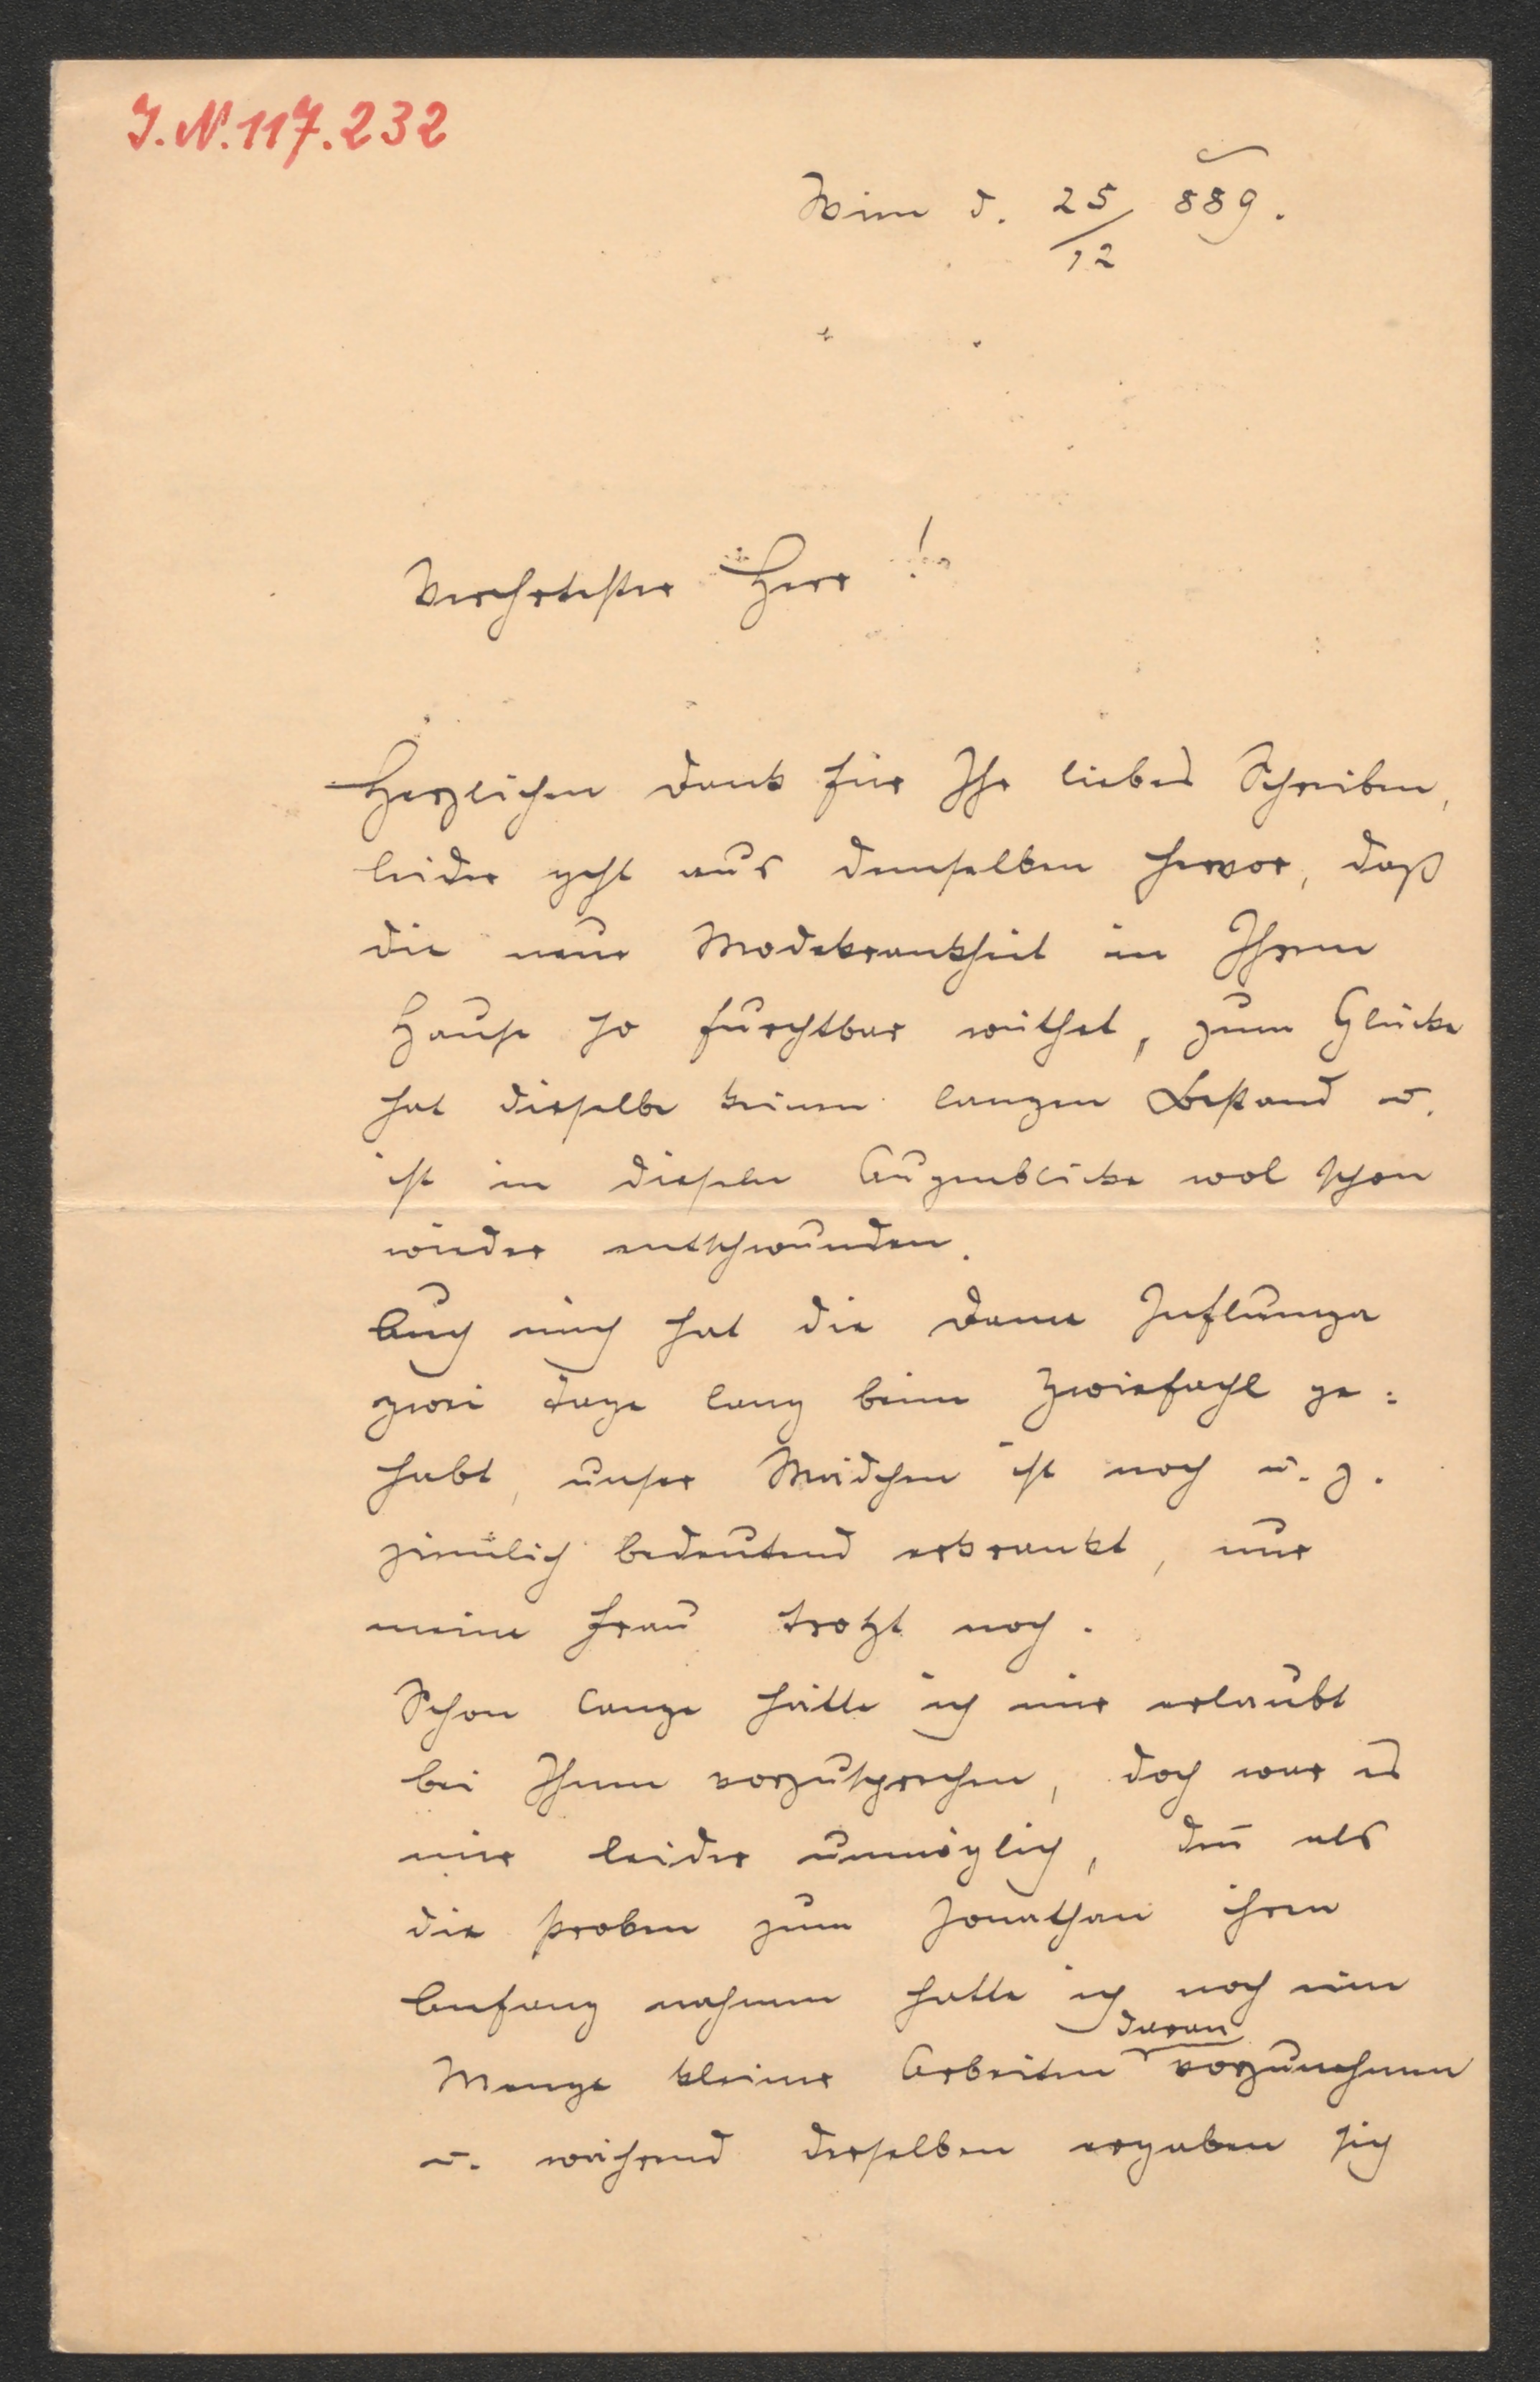 J.N.117.232
Wien d. 25/12 889.
Verehrtester Herr!
Herzlichen Dank für Ihr liebes Schreiben,
leider geht aus demselben hervor, daß
die neue Modekrankheit in Ihrem
Hause so furchtbar wüthet, zum Glücke
hat dieselbe keinen langen Bestand u.
ist in diesem Augenblicke wol schon
wieder entschwunden.
Auch mich hat die Dame Influenza
zwei Tage lang beim Zwiefachl ge=
habt, unser Mädchen ist noch u. z.
zimlich bedeutend erkrankt, nur
meine Frau trotzt noch.
Schon lange hätte ich mir erlaubt
bei Ihnen vorzusprechen, doch war es
mir leider unmöglich, den̄ als
die Proben zum Jonathan ihren
Anfang nahmen hatte ich noch eine
daran
Menge kleiner Arbeiten vorzunehmen
u. während derselben ergaben sich